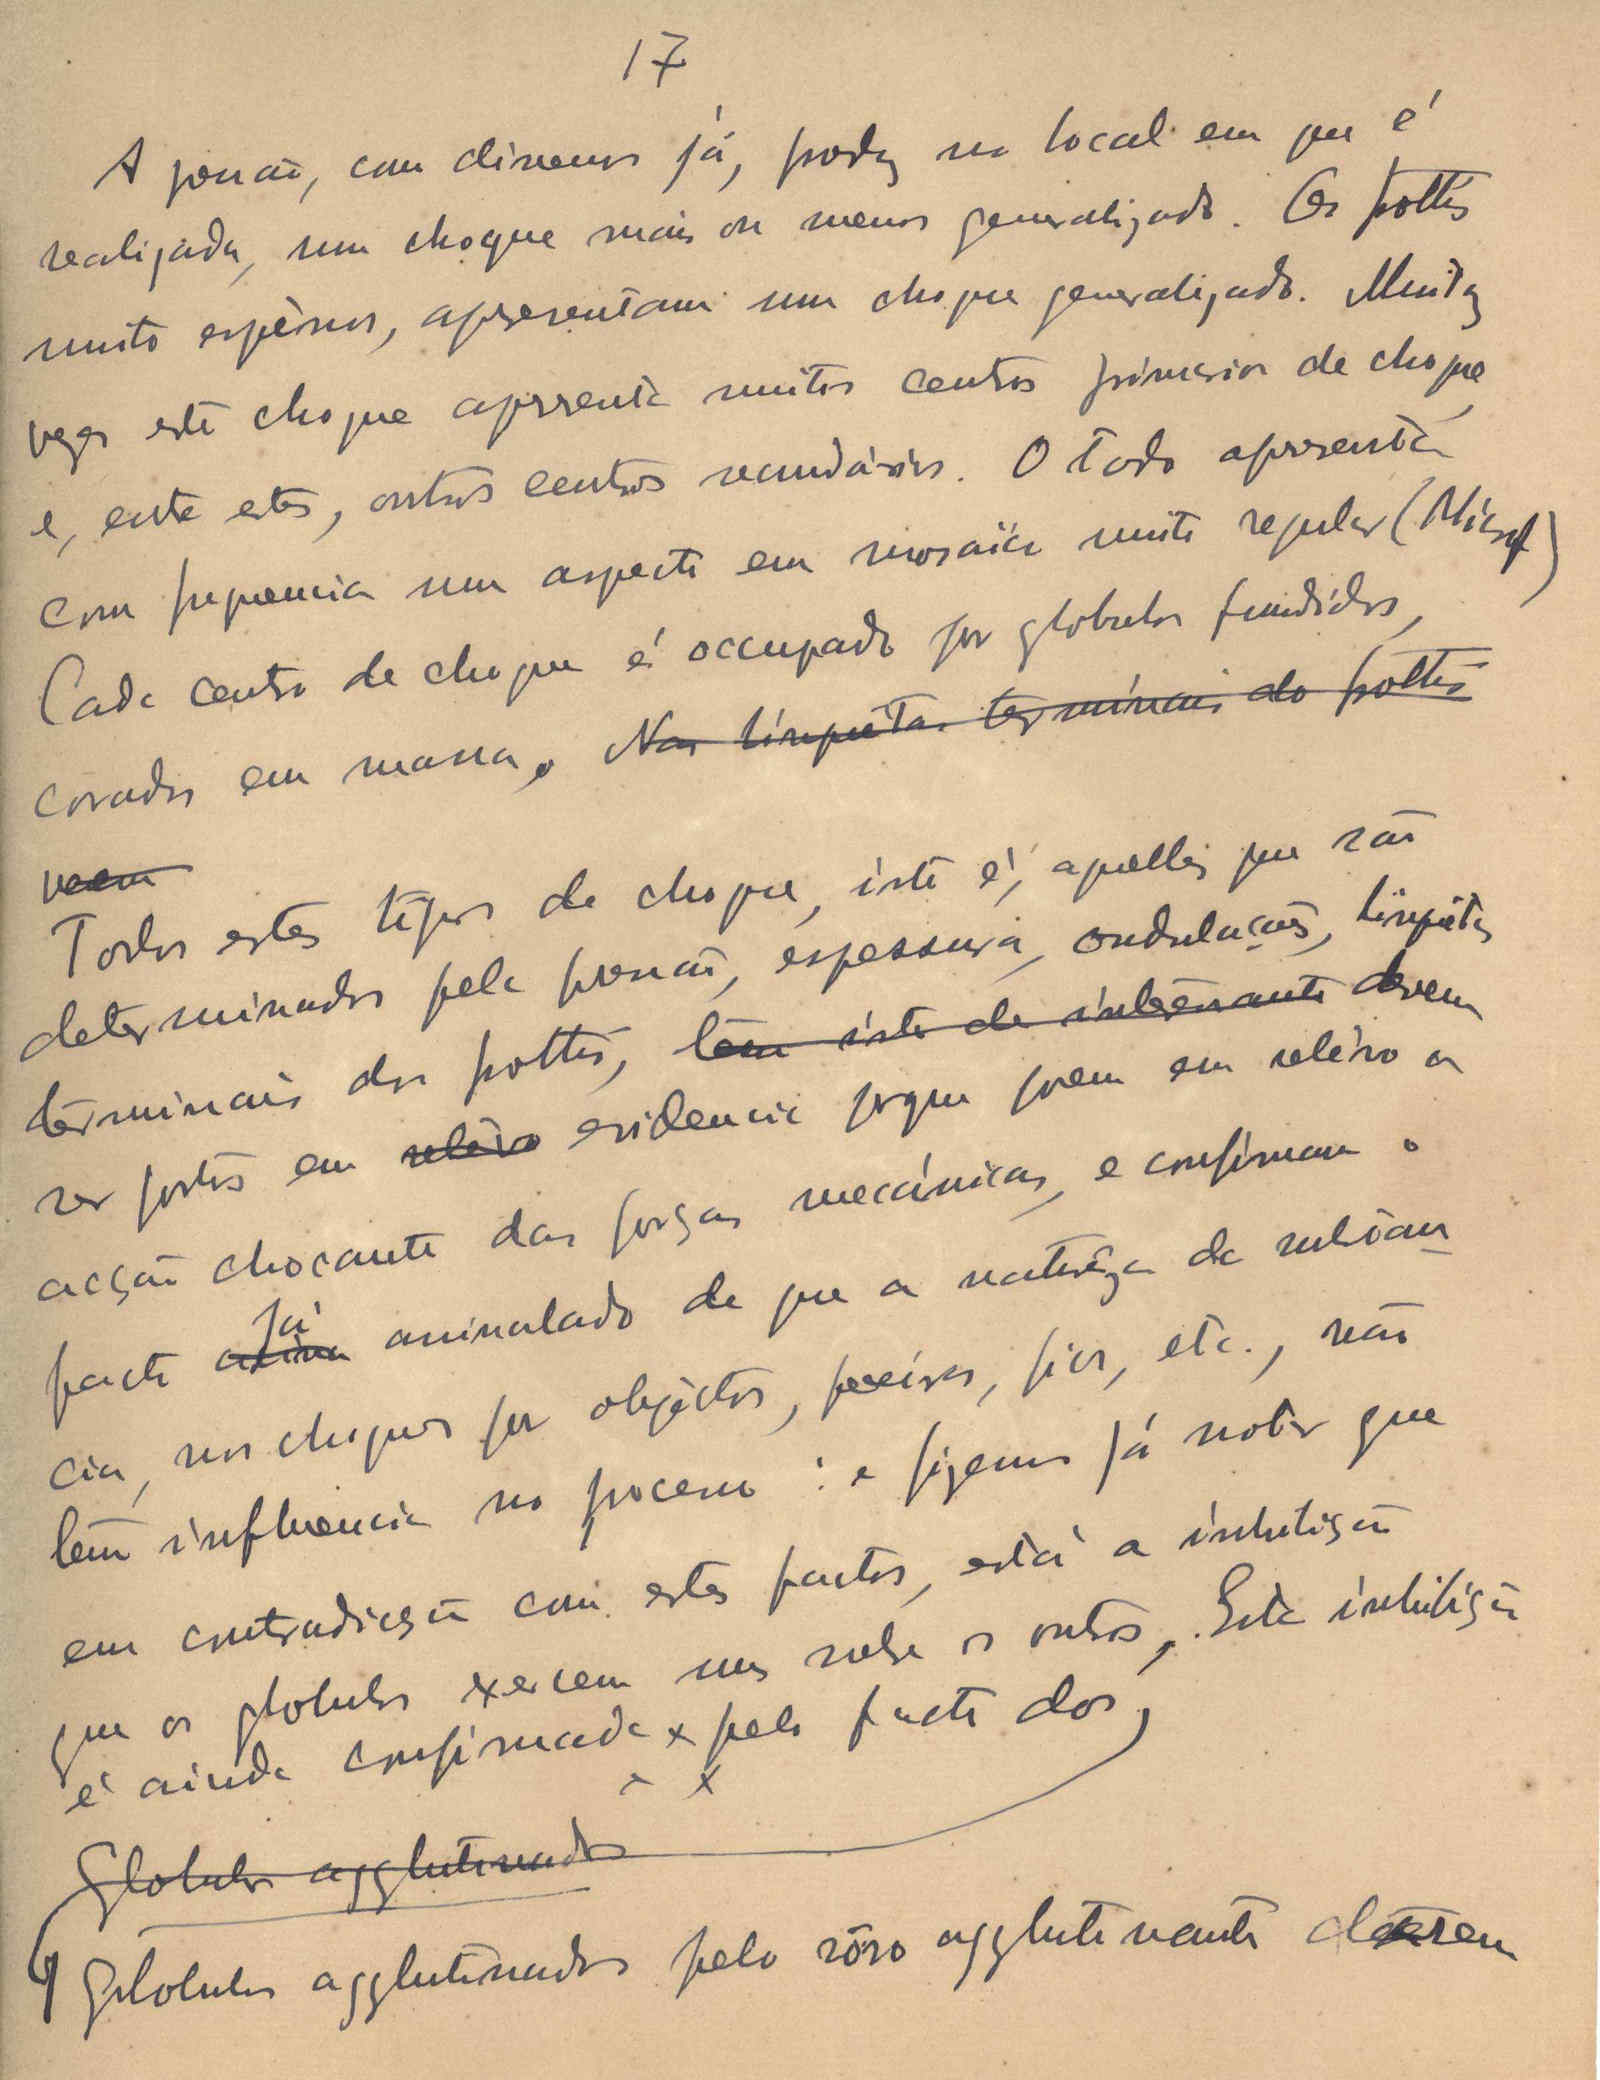 17
A pressão, como dissemos já, produz no local em que é
realizada, um choque mais ou menos generalizado. Os frottis
muito espêssos, apresentam um choque generalizado. Muitas
vezes este choque apresenta muitos centros primarios de choque
e, entre estes, outros centros secundários. O todo apresenta
com frequencia um aspecto em mosaico muito regular (Microf)
Cada centro de choque é occupado por globulos fundidos,
corados em massa. Nas linguetas terminais do frottis
veem
Todos estes tipos de choque, isto é, aquelles que são
determinados pela pressão, espessura, ondulações, linguetas
terminais dos frottis, têm isto de interessante devem
ser postos em relêvo evidencia porque poem em relêvo a
acção chocante das forças mecánicas, e confirmam o
já
facto acima assinalado de que a naturêza da substan
cia, nos choques por objéctos, poeiras, fios, etc., não
têm influencia no processo: e fizemos já notar que
em contradicção com estes factos, está a inibição
que os globulos exercem uns sobre os outros. Esta inhibição
é ainda confirmada x pelo facto dos
x
Globulos agglutinados
Globulos agglutinados pelo sôro agglutinante